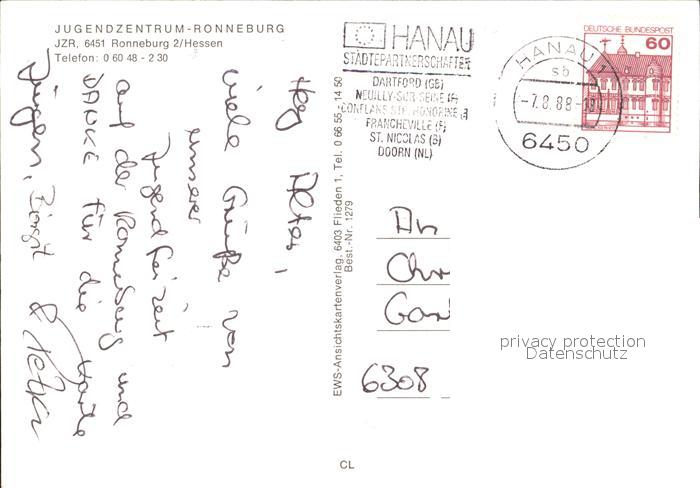 JUGENDZENTRUM-RONNEBURG
JZR, 6451 Ronneburg 2/Hessen
Telefon: 0 60 48 - 2 30
Hey Alter,
viele Grüße von
unserer
Jugendfreizeit
auf der Ronneburg und
DANKE für die Karte
Jürgen, Birgit &
EWS-Ansichtskartenverlag, 6403 Flieden 1, Tel. 0 66 55 - 14 50
Best.-Nr. 1279
HANAU
STÄDTEPARTNERSCHAFTEN
DARTFORD (GB)
NEUILLY-SUR-SEINE (F)
CONFLANS-STE-HONORINE (F)
FRANCHEVILLE (F)
ST. NICOLAS (B)
DOORN (NL)
HANAU 1
sb
-7.8.88-18
6450
DEUTSCHE BUNDESPOST
60
An
Chr
6308
privacy protection
Datenschutz
CL